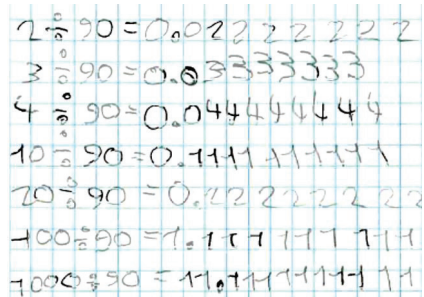 2÷90=0.02222222
3÷90=0.03333333
4÷90=0.04444444
10÷90=0.111111111
20÷90=0.22222222
100÷90=1.11111111
1000÷90=11.111111111